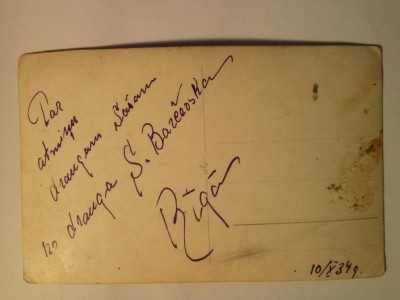 Par
atmiņu
draugam Sašam
no drauga S. Barčevska
Rīgā
10/X 34g.